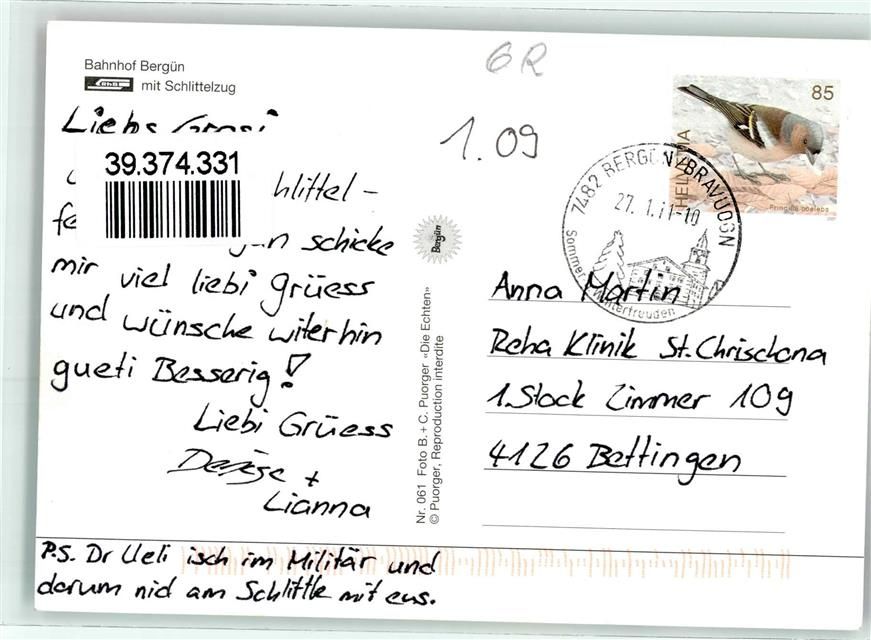 Bahnhof Bergün
RhB mit Schlittelzug
GR
1.09
85
HELVETIA
Fringilla coelebs
7482 BERGÜN/BRAVUOGN
27.1.11-10
Sommer
Winterfreuden
Liebs
39.374.331
hlittel-
schicke
mir viel liebi Grüess
und wünsche witerhin
gueti Besserig!
Liebi Grüess
Denise +
Lianna
P.S. Dr Ueli isch im Militär und
darum nid am Schlittle mit eus.
Bergün
Nr. 061 Foto B. + C. Puorger «Die Echten»
© Puorger, Reproduction interdite
Anna Martin
Reha Klinik St. Chrischona
1. Stock Zimmer 109
4126 Bettingen